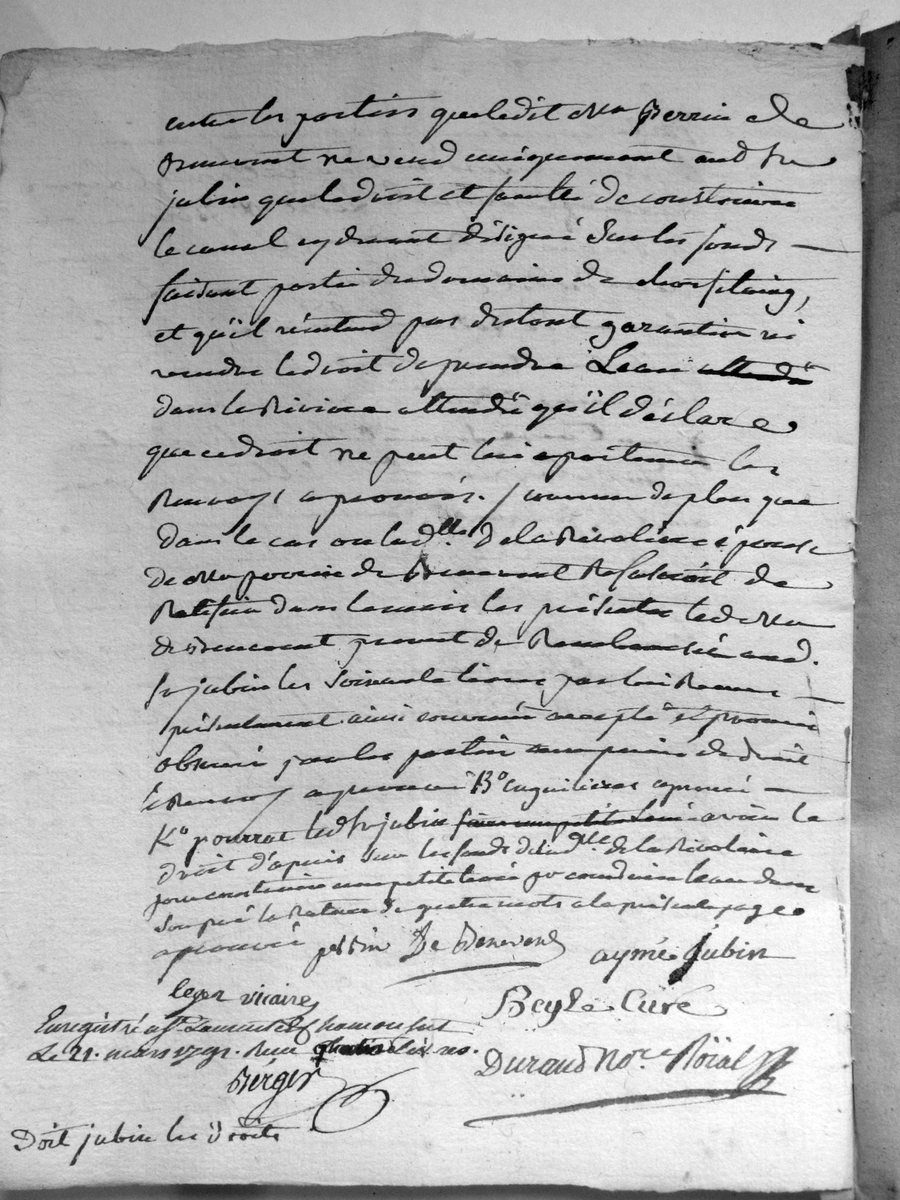 entre les parties que ledit Mr perrin de
Benevent ne vend uniquement aud Sr
jubin que le droit et faculté de construire
le canal cy devant désigné sur les fonds
faisant partie du domaine de
et qu'il n'entend pas du tout garantir ni
vendre le droit de prendre Leau
dans la Riviere attendu qu'il déclare
que ce droit ne peut lui apartenir les
Renvoys aprouvés. convenu de plus que
dans le cas ou lad.lle De la Rivoliere épouse
de Mr perrin de Benevent Refuseroit de
Ratifier dans le mois les présentes led Mr
de Benevent promet de Rembourser aud.
Sr jubin les par lui Remis
présentement ainsi convenu accepté et promis
observé par les parties aux peines de droit
le Renvoy aprouvé Bo aprouvé
Ko pourrat led Sr jubin avoir le
droit d'apuis sur les fonds de lad Dlle de la Rivoliere
pour construire une petite levée pr conduire leau dans
Son pré la Rature de quatre mots a la présente page
aprouvée perrin De Benevent aymé jubin
leger vicaire
Beyle Curé
Enregistré a St Laurent et
Le 21. mars 1791. Reçu
Durand Nore Roïal
Berger
Doit jubin les droits